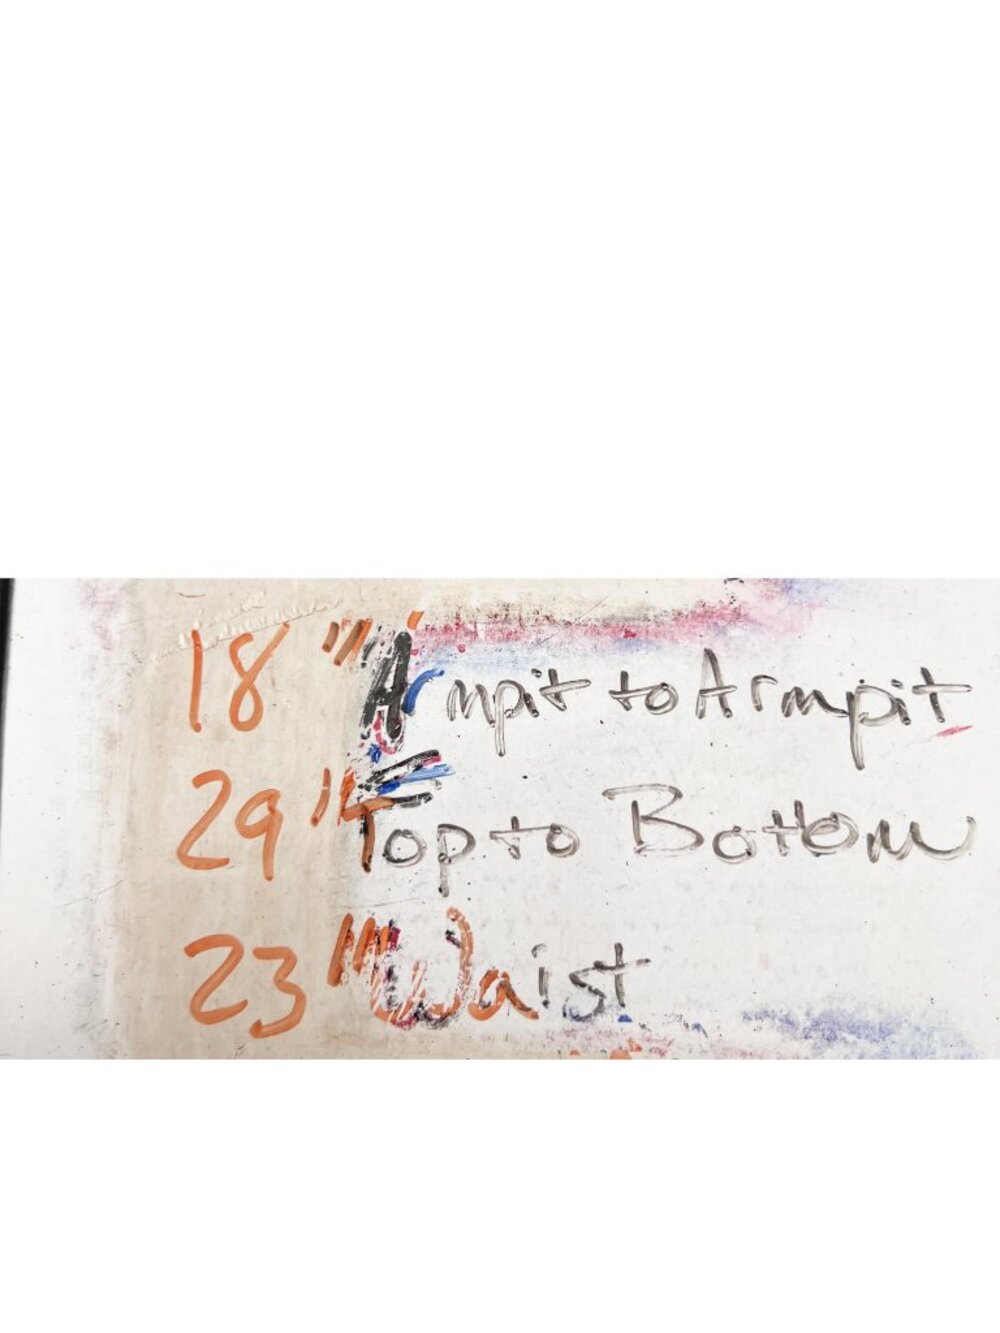 18" Armpit to Armpit
29" Top to Bottom
23" Waist